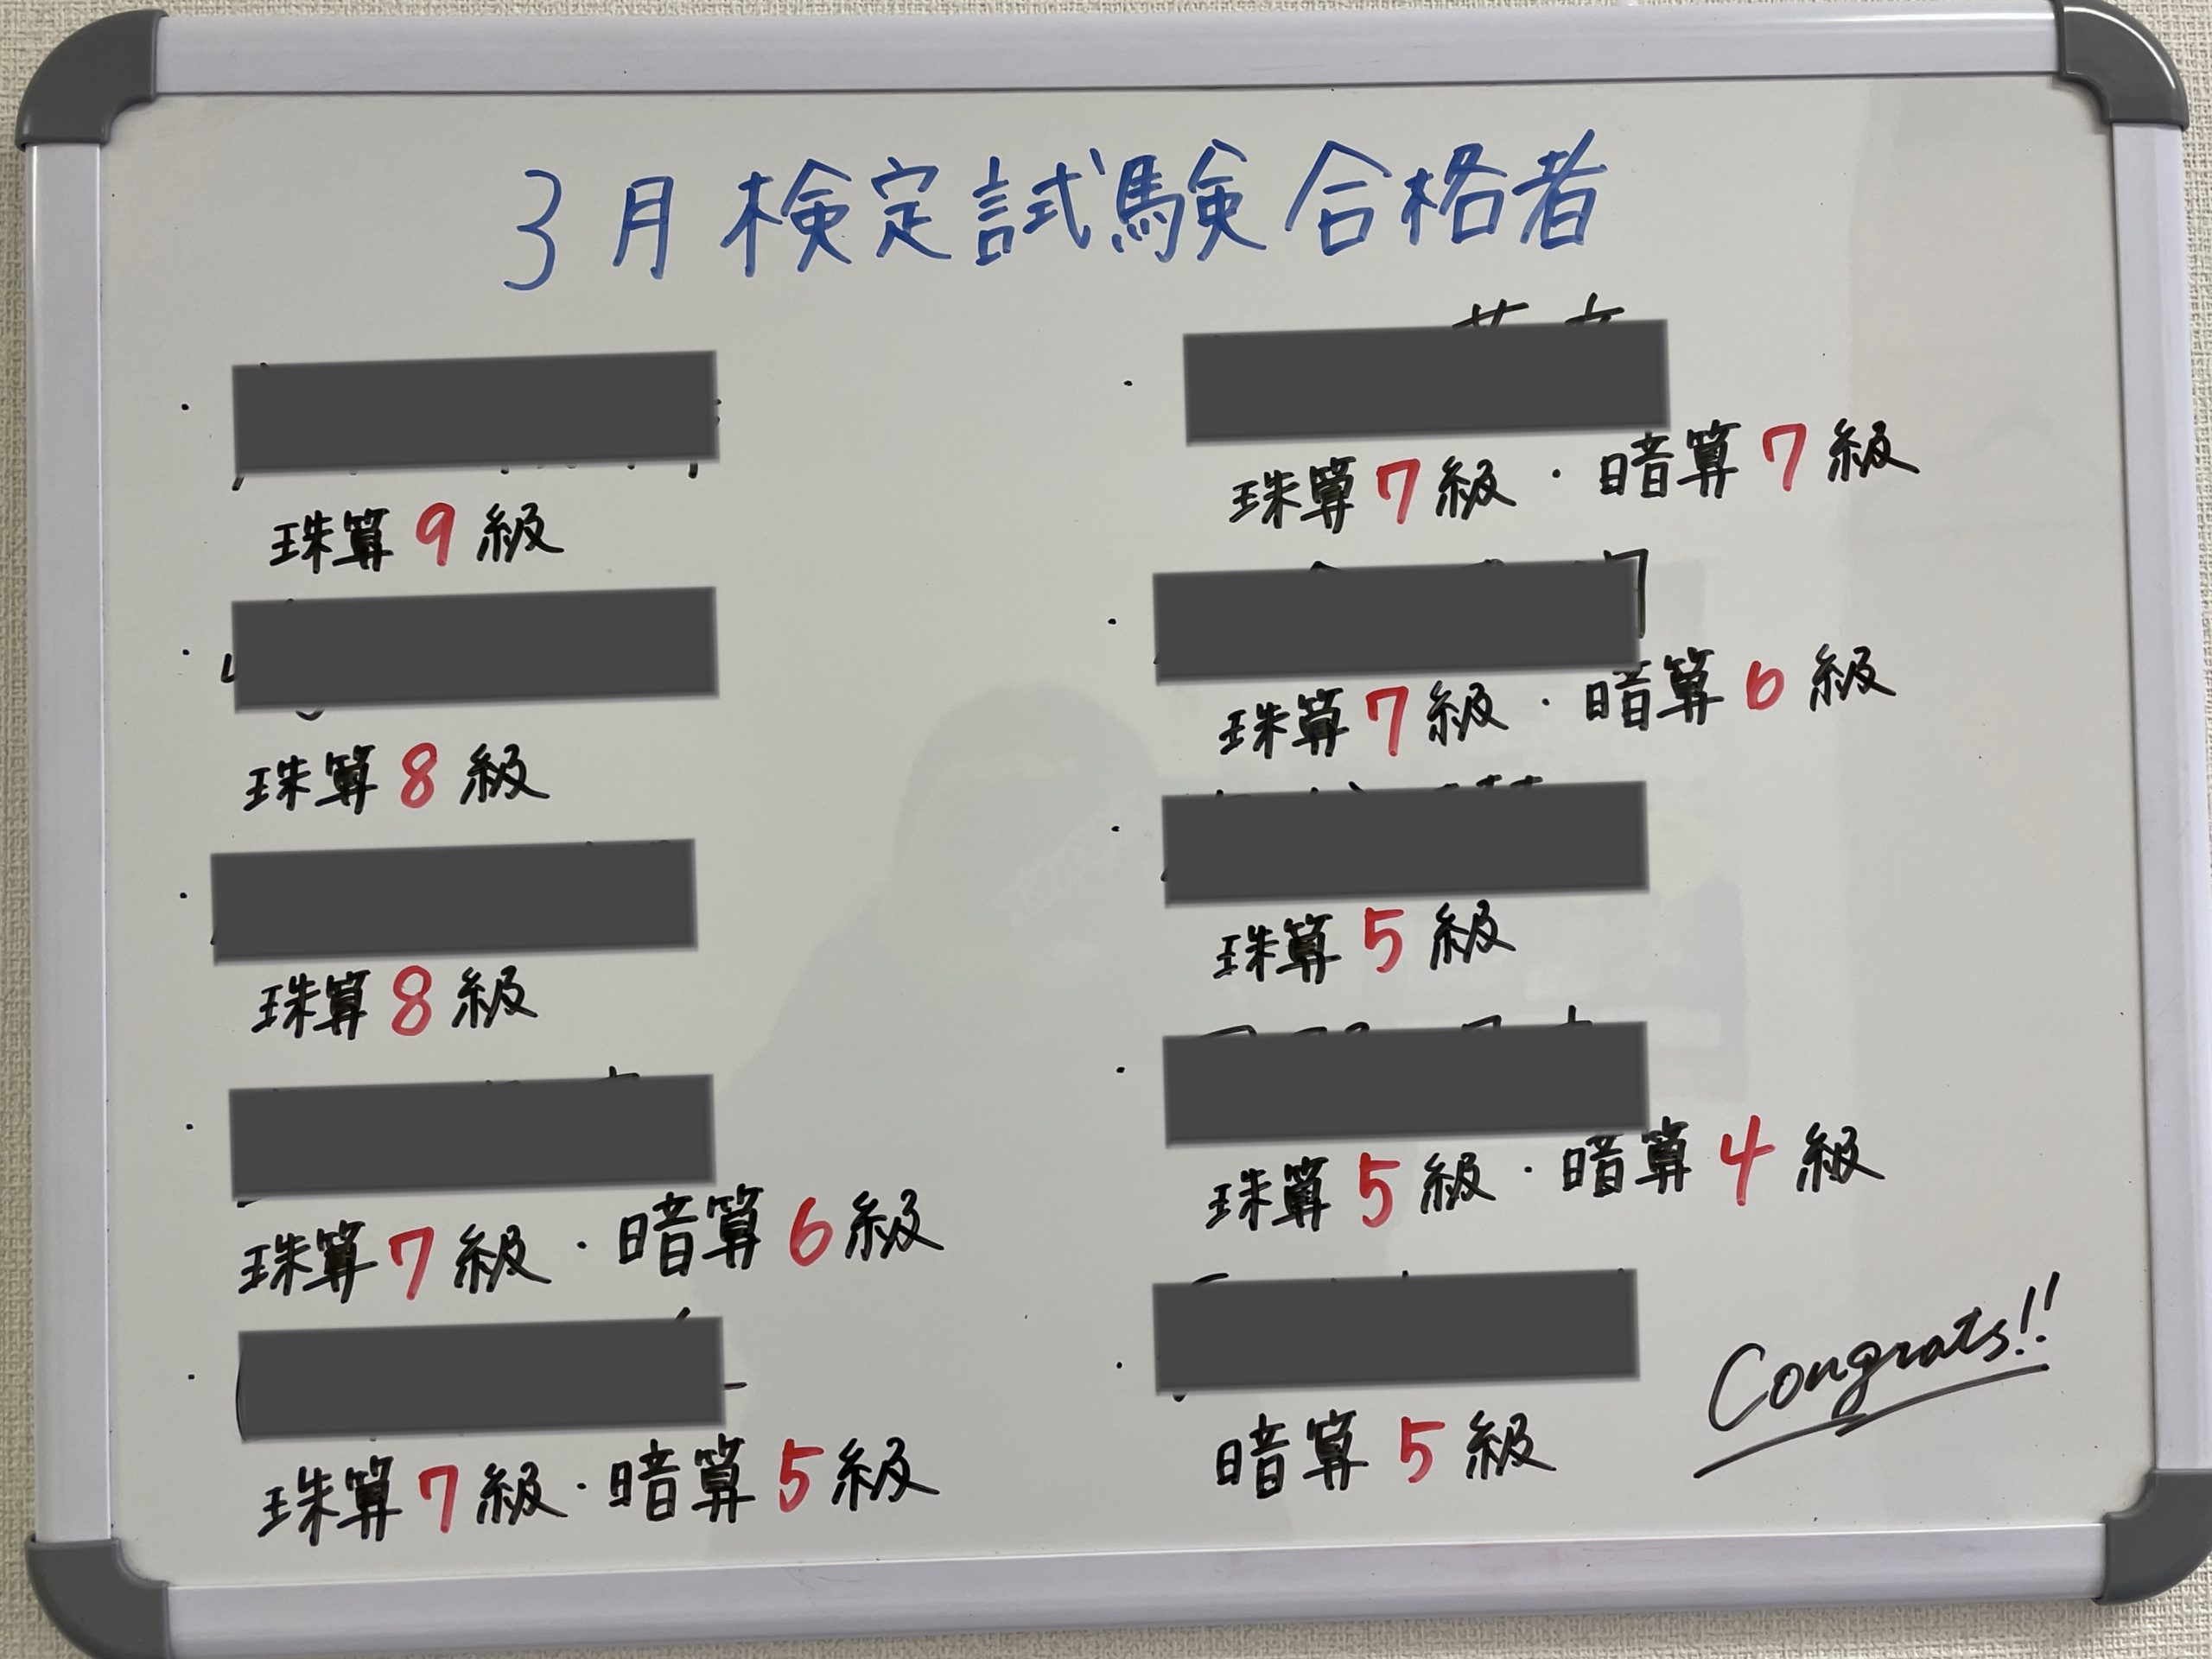 3月検定試験合格者
・
珠算9級
・
珠算8級
・
珠算8級
・
珠算7級・暗算6級
・
珠算7級・暗算5級
・
珠算7級・暗算7級
・
珠算7級・暗算6級
・
珠算5級
・
珠算5級・暗算4級
・
暗算5級
Congrats!!